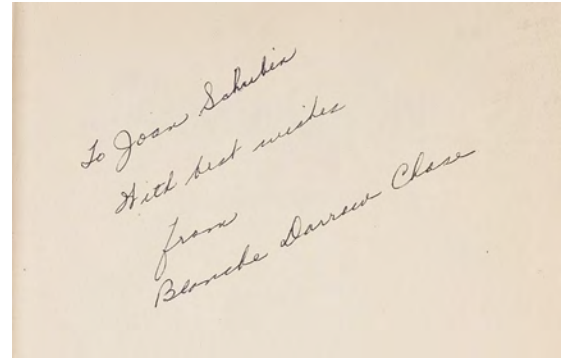 To Joan Schubin
With best wishes
from
Blanche Darrow Chase